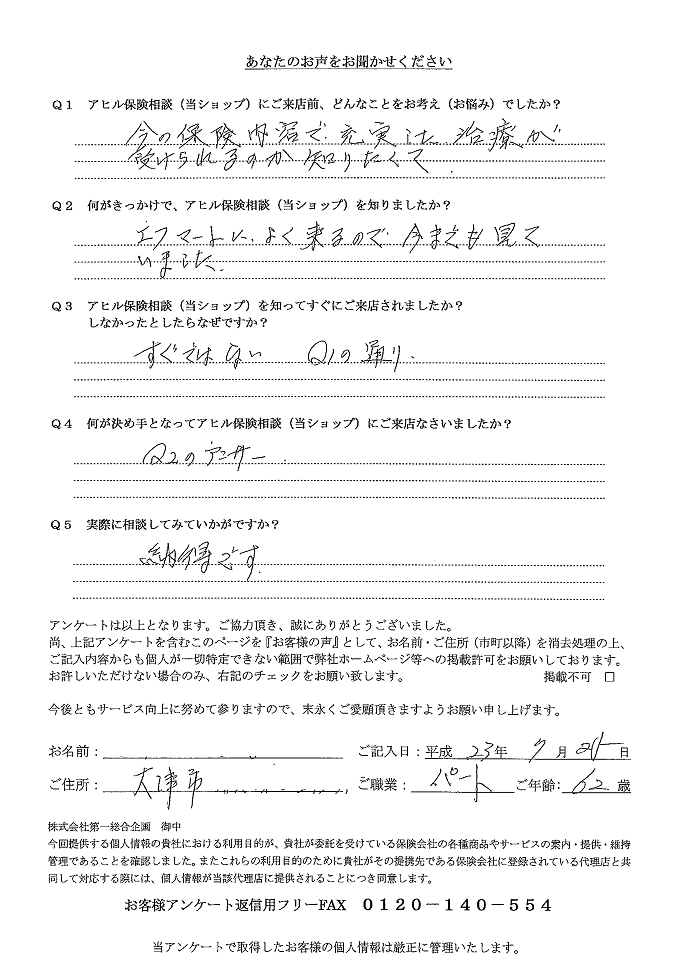 あなたのお声をお聞かせください
Q1 アヒル保険相談(当ショップ)にご来店前、どんなことをお考え(お悩み)でしたか?
今の保険内容で充実した治療が
受けられるのか知りたくて.
Q2 何がきっかけで、アヒル保険相談(当ショップ)を知りましたか?
エフマートに、よく来るので今までも見て
いました.
Q3 アヒル保険相談(当ショップ)を知ってすぐにご来店されましたか?
しなかったとしたらなぜですか?
すぐではない Q1の通り.
Q4 何が決め手となってアヒル保険相談(当ショップ)にご来店なさいましたか?
Q2のアンサー.
Q5 実際に相談してみていかがですか?
納得です.
アンケートは以上となります。ご協力頂き、誠にありがとうございました。
尚、上記アンケートを含むこのページを『お客様の声』として、お名前・ご住所(市町以降)を消去処理の上、
ご記入内容からも個人が一切特定できない範囲で弊社ホームページ等への掲載許可をお願いしております。
お許しいただけない場合のみ、右記のチェックをお願い致します。 掲載不可 □
今後ともサービス向上に努めて参りますので、末永くご愛顧頂きますようお願い申し上げます。
お名前: ご記入日:平成 23年 7月 日
ご住所: 大津市 ご職業: パート ご年齢: 62 歳
株式会社第一総合企画 御中
今回提供する個人情報の貴社における利用目的が、貴社が委託を受けている保険会社の各種商品やサービスの案内・提供・維持
管理であることを確認しました。またこれらの利用目的のために貴社がその提携先である保険会社に登録されている代理店と共
同して対応する際には、個人情報が当該代理店に提供されることにつき同意します。
お客様アンケート返信用フリーFAX 0120-140-554
当アンケートで取得したお客様の個人情報は厳正に管理いたします。